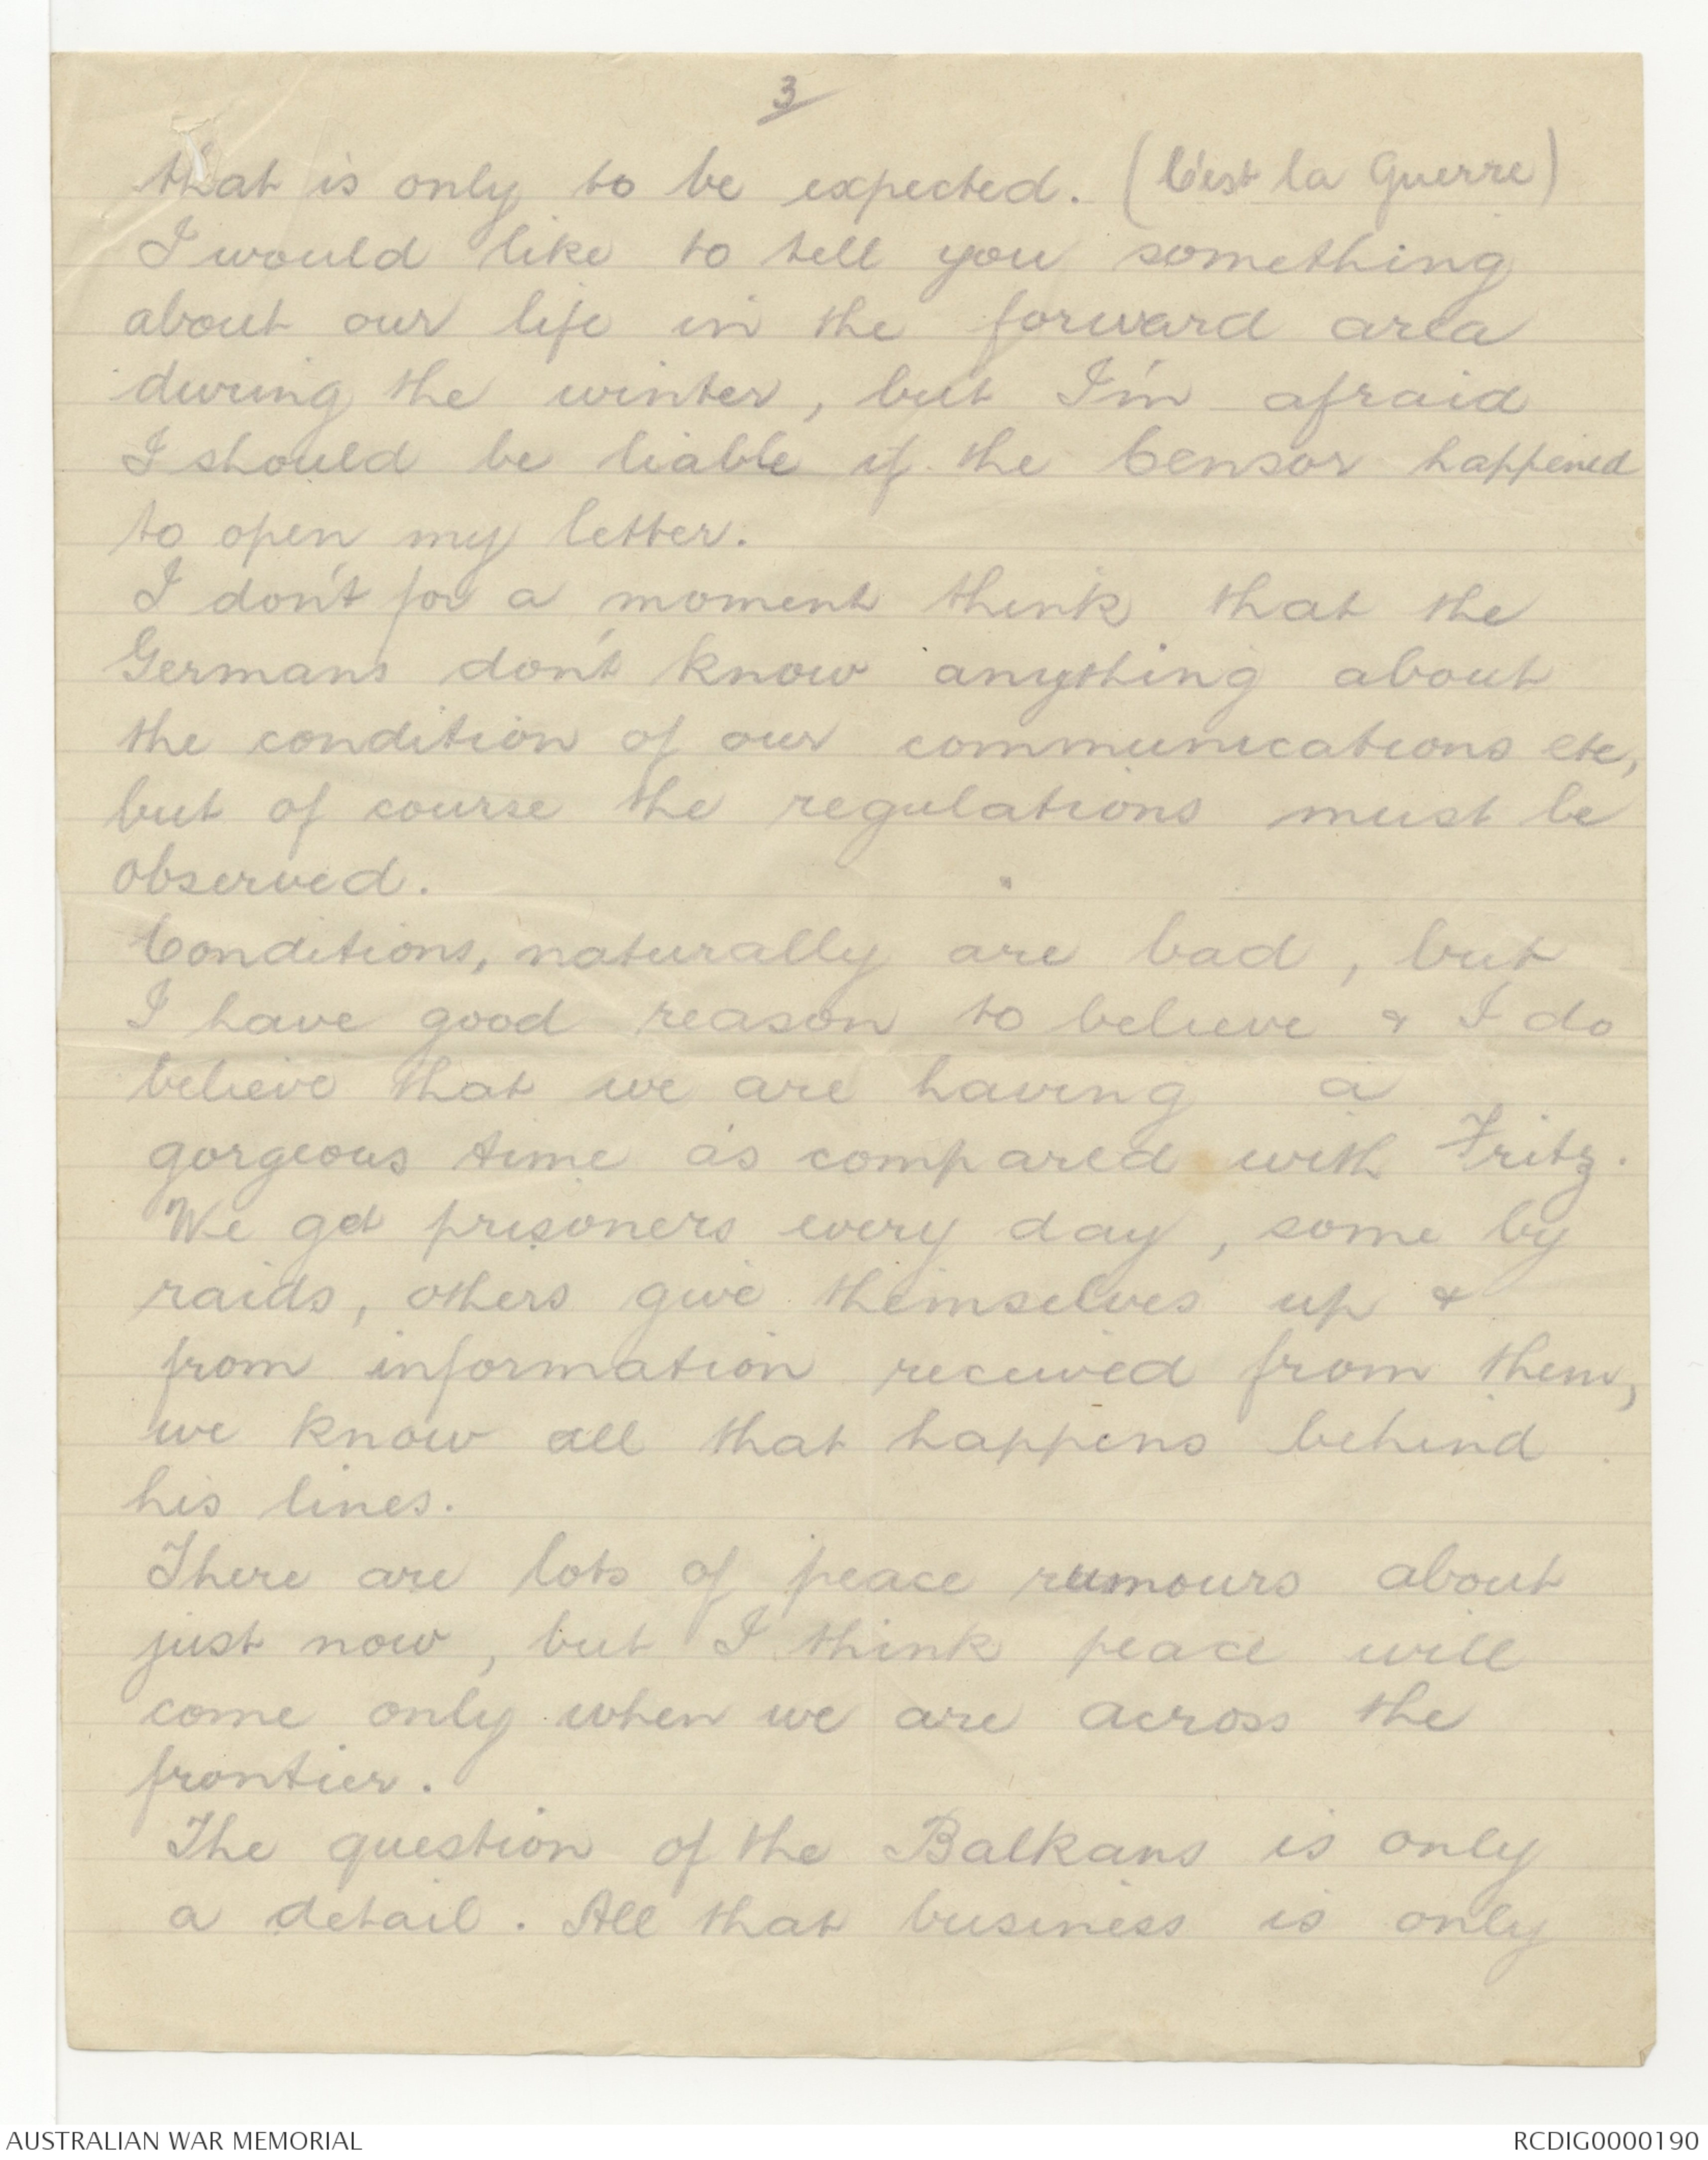 3
that is only to be expected. (C'est la Guerre)
I would like to tell you something
about our life in the forward area
during the winter, but I'm afraid
I should be liable if the Censor happened
to open my letter.
I don't for a moment think that the
Germans don't know anything about
the condition of our communications etc,
but of course the regulations must be
observed.
Conditions, naturally are bad, but
I have good reason to believe & I do
believe that we are having a
gorgeous time as compared with Fritz.
We get prisoners every day, some by
raids, others give themselves up &
from information received from them,
we know all that happens behind
his lines.
There are lots of peace rumours about
just now, but I think peace will
come only when we are across the
frontier.
The question of the Balkans is only
a detail. All that business is only
AUSTRALIAN WAR MEMORIAL
RCDIG0000190